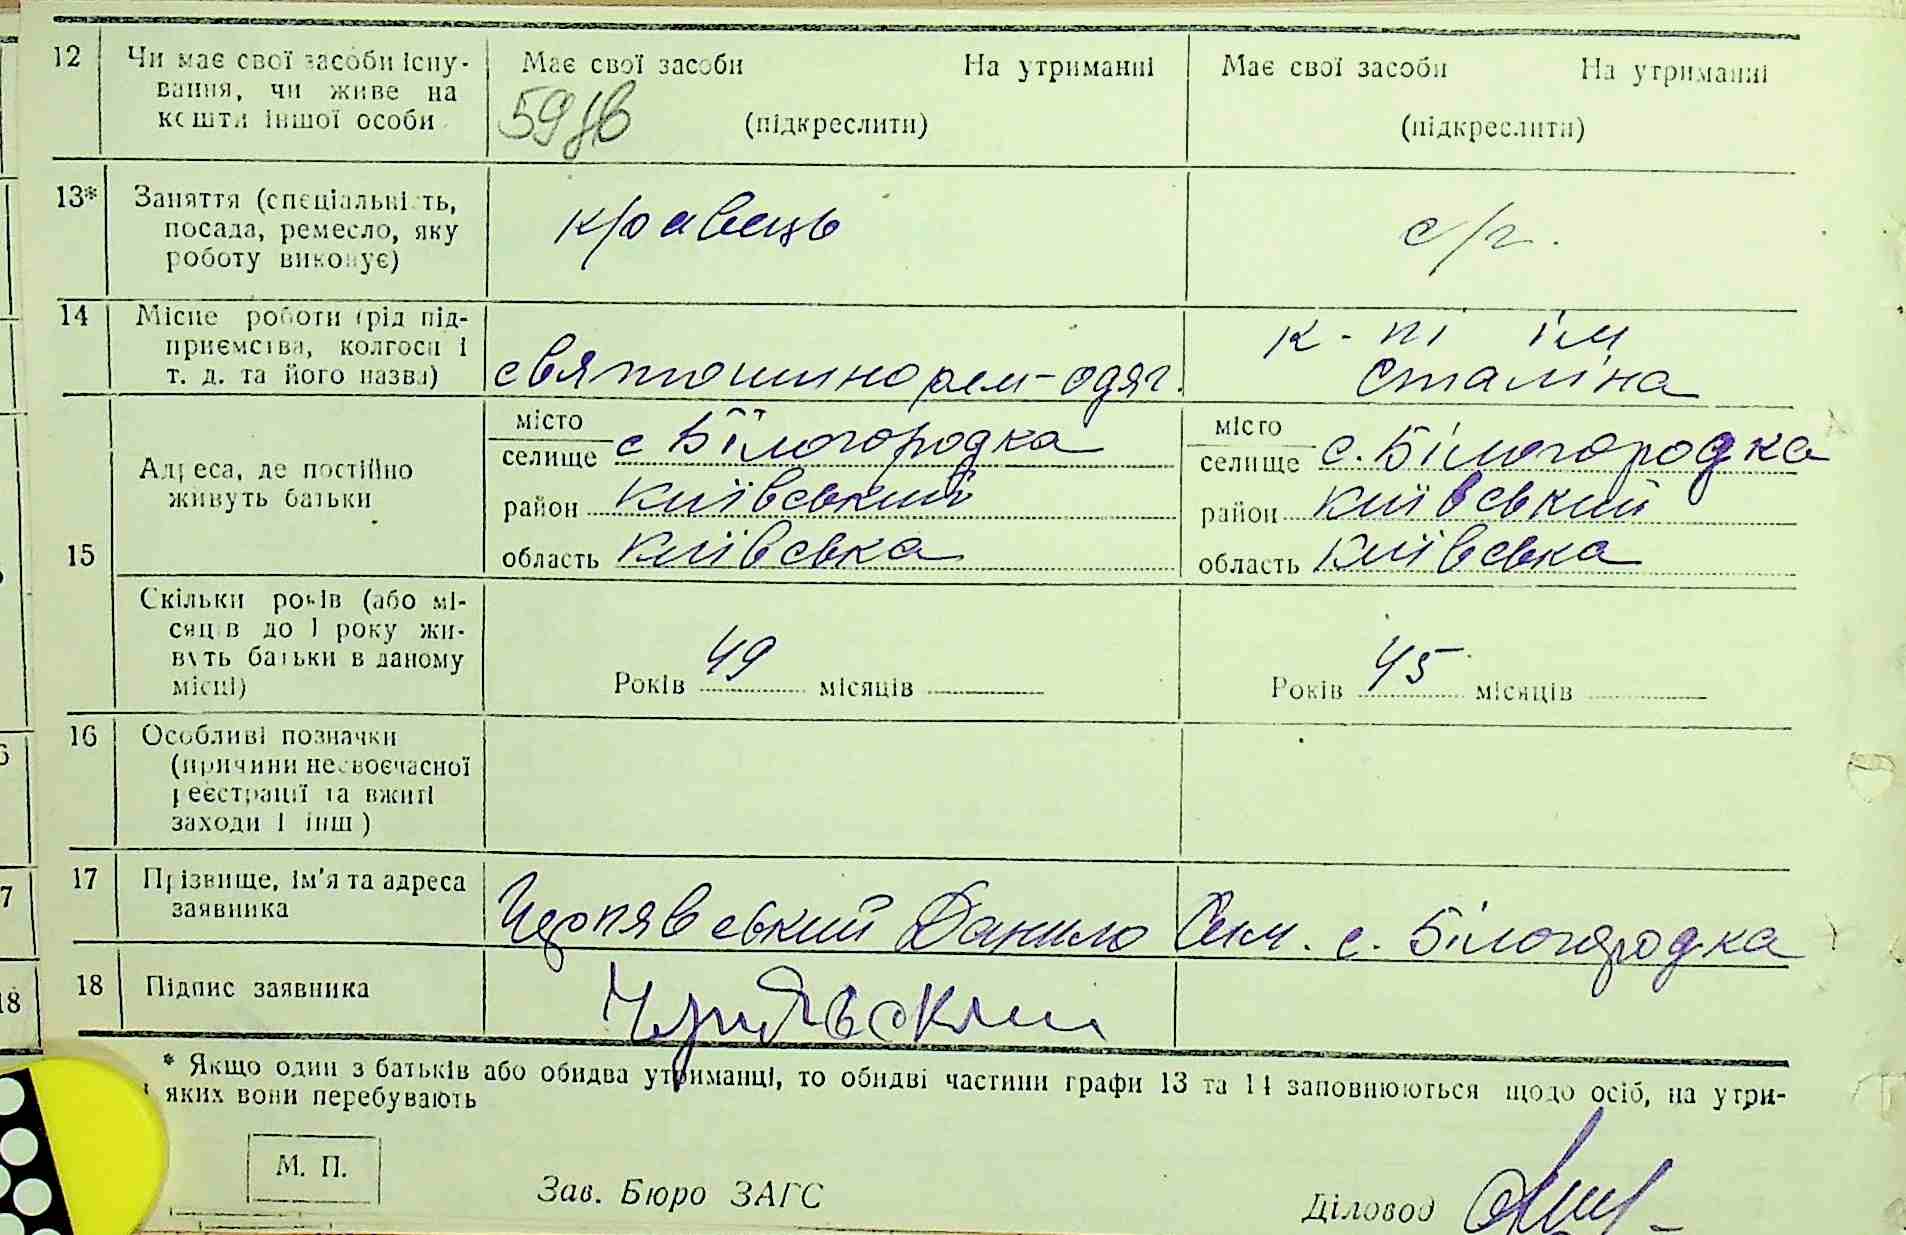 12 Чи має свої засоби існу- Має свої засоби На утриманні Має свої засоби На утриманні
вання, чи живе на
кошти іншої особи (підкреслити) (підкреслити)
13* Заняття (спеціальність, кравець с/г.
посада, ремесло, яку
роботу виконує)
14 Місце роботи (рід під- к-пі ім
приємства, колгосп і святошино рем-одяг. Сталіна
т. д. та його назва)
місто с Білогородка місто с. Білогородка
селище селище
Адреса, де постійно
живуть батьки район Київський район Київський
15 область Київська область Київська
Скільки років (або мі-
сяців до 1 року жи-
вуть батьки в даному Років 49 місяців Років 45 місяців
місці)
16 Особливі позначки
(причини несвоєчасної
реєстрації та вжиті
заходи і інш)
17 Прізвище, ім'я та адреса
заявника Данило с. Білогородка
18 Підпис заявника
* Якщо один з батьків або обидва утриманці, то обидві частини графи 13 та 14 заповнюються щодо осіб, на утри-
яких вони перебувають
М. П.
Зав. Бюро ЗАГС
Діловод
7
18